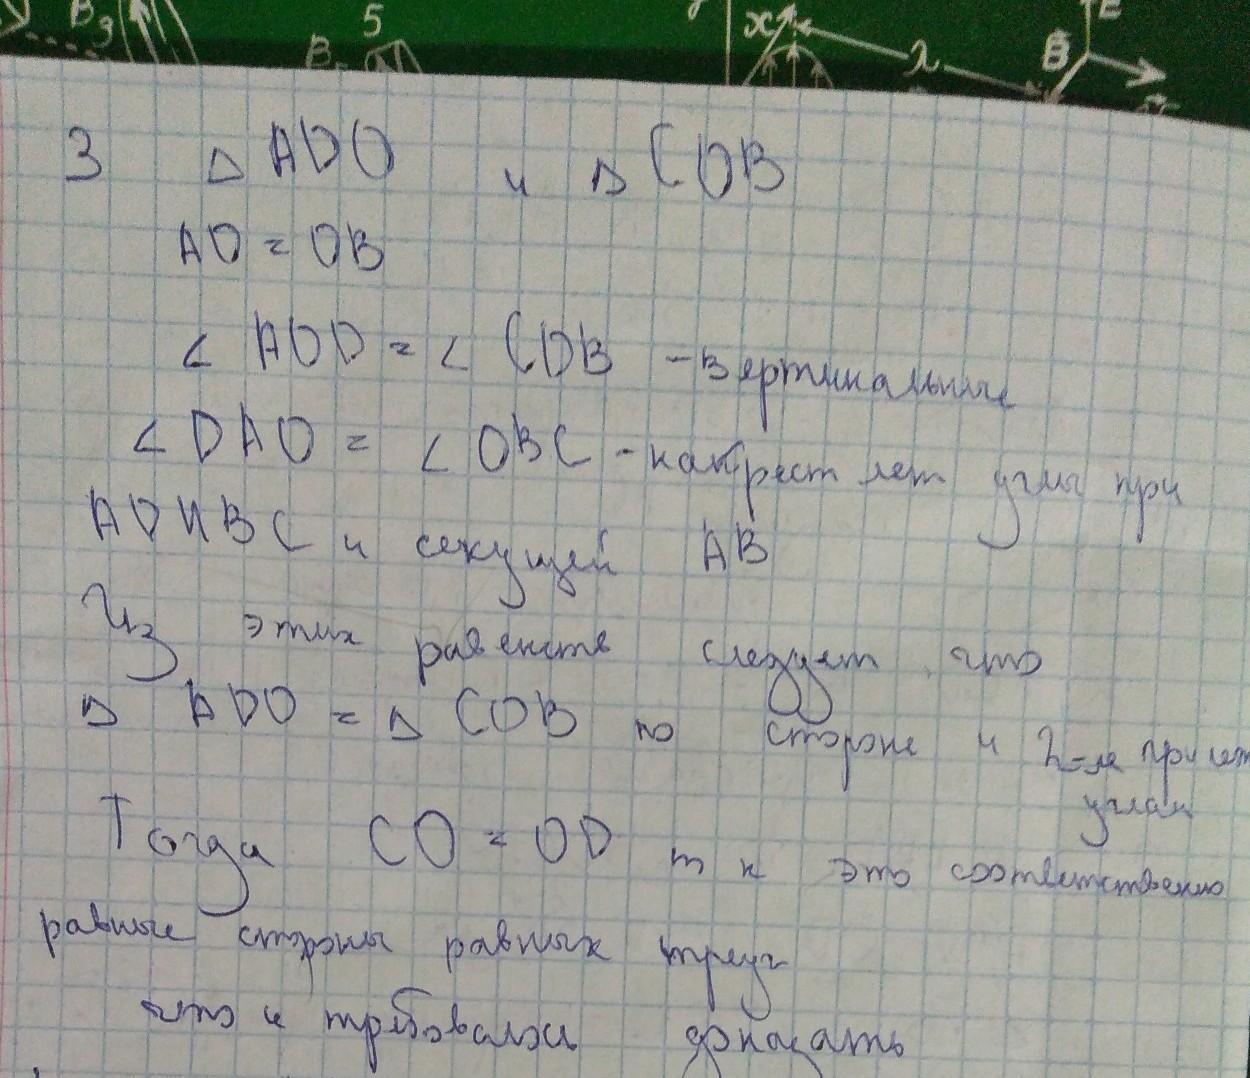 B₃ 5 B x λ B E
3 △ ADO и △ COB
AO = OB
∠ AOD = ∠ COB - вертикальные
∠ DAO = ∠ OBC - накрест леж углы при
AD И BC и секущей AB
Из этих равенств следует что
△ ADO = △ COB по стороне и 2-м прилеж
углам
Тогда CO = OD т к это соответственно
равные стороны равных треуг
что и требовалось доказать